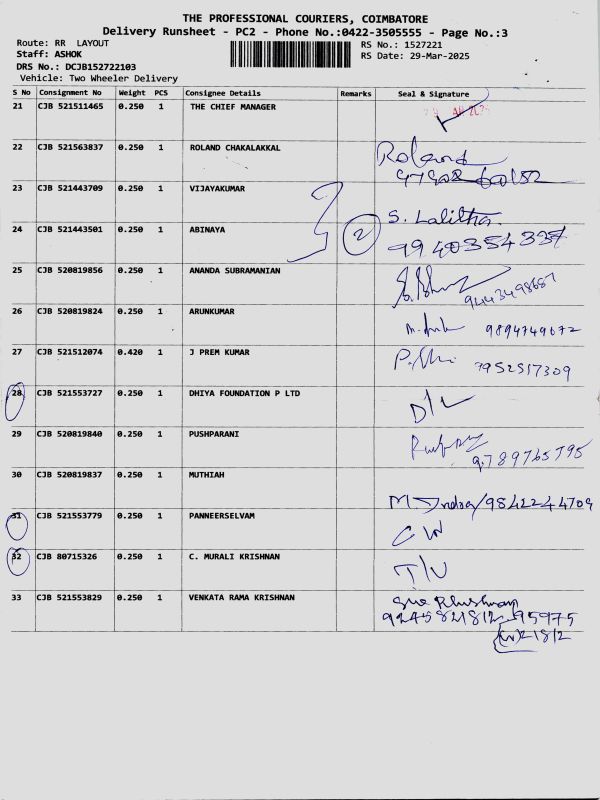 THE PROFESSIONAL COURIERS, COIMBATORE
Delivery Runsheet - PC2 - Phone No.:0422-3505555 - Page No.:3
Route: RR LAYOUT
RS No.: 1527221
Staff: ASHOK
RS Date: 29-Mar-2025
DRS No.: DCJB152722103
Vehicle: Two Wheeler Delivery
S No Consignment No Weight PCS Consignee Details Remarks Seal & Signature
21 CJB 521511465 0.250 1 THE CHIEF MANAGER
22 CJB 521563837 0.250 1 ROLAND CHAKALAKKAL Roland
23 CJB 521443709 0.250 1 VIJAYAKUMAR
S. Lalitha
24 CJB 521443501 0.250 1 ABINAYA 2
9940354337
25 CJB 520819856 0.250 1 ANANDA SUBRAMANIAN 9443498687
26 CJB 520819824 0.250 1 ARUNKUMAR 9894749672
27 CJB 521512074 0.420 1 J PREM KUMAR 7952517309
28 CJB 521553727 0.250 1 DHIYA FOUNDATION P LTD D/L
29 CJB 520819840 0.250 1 PUSHPARANI
9789765795
30 CJB 520819837 0.250 1 MUTHIAH
M. Indra/9842244709
31 CJB 521553779 0.250 1 PANNEERSELVAM
32 CJB 80715326 0.250 1 C. MURALI KRISHNAN T/U
33 CJB 521553829 0.250 1 VENKATA RAMA KRISHNAN
9245821812 95975
21812